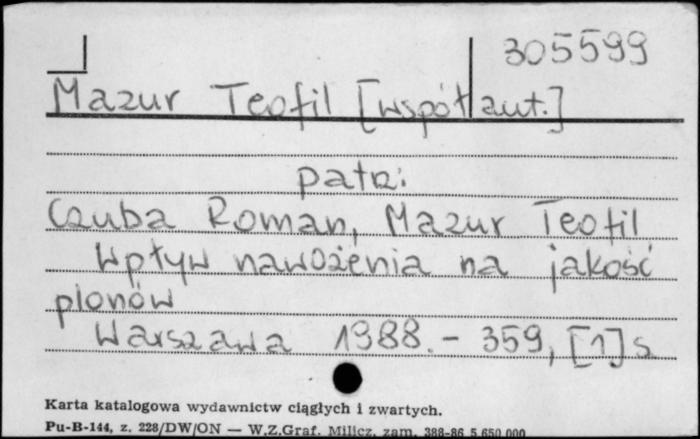 305599
Mazur Teofil [współaut.]
patrz:
Czuba Roman, Mazur Teofil
Wpływ nawożenia na jakość
plonów
Warszawa 1988. - 359, [1] s
Karta katalogowa wydawnictw ciągłych i zwartych.
Pu-B-144, z. 228/DW/ON — W.Z.Graf. Milicz, zam. 388-86 5.650.000